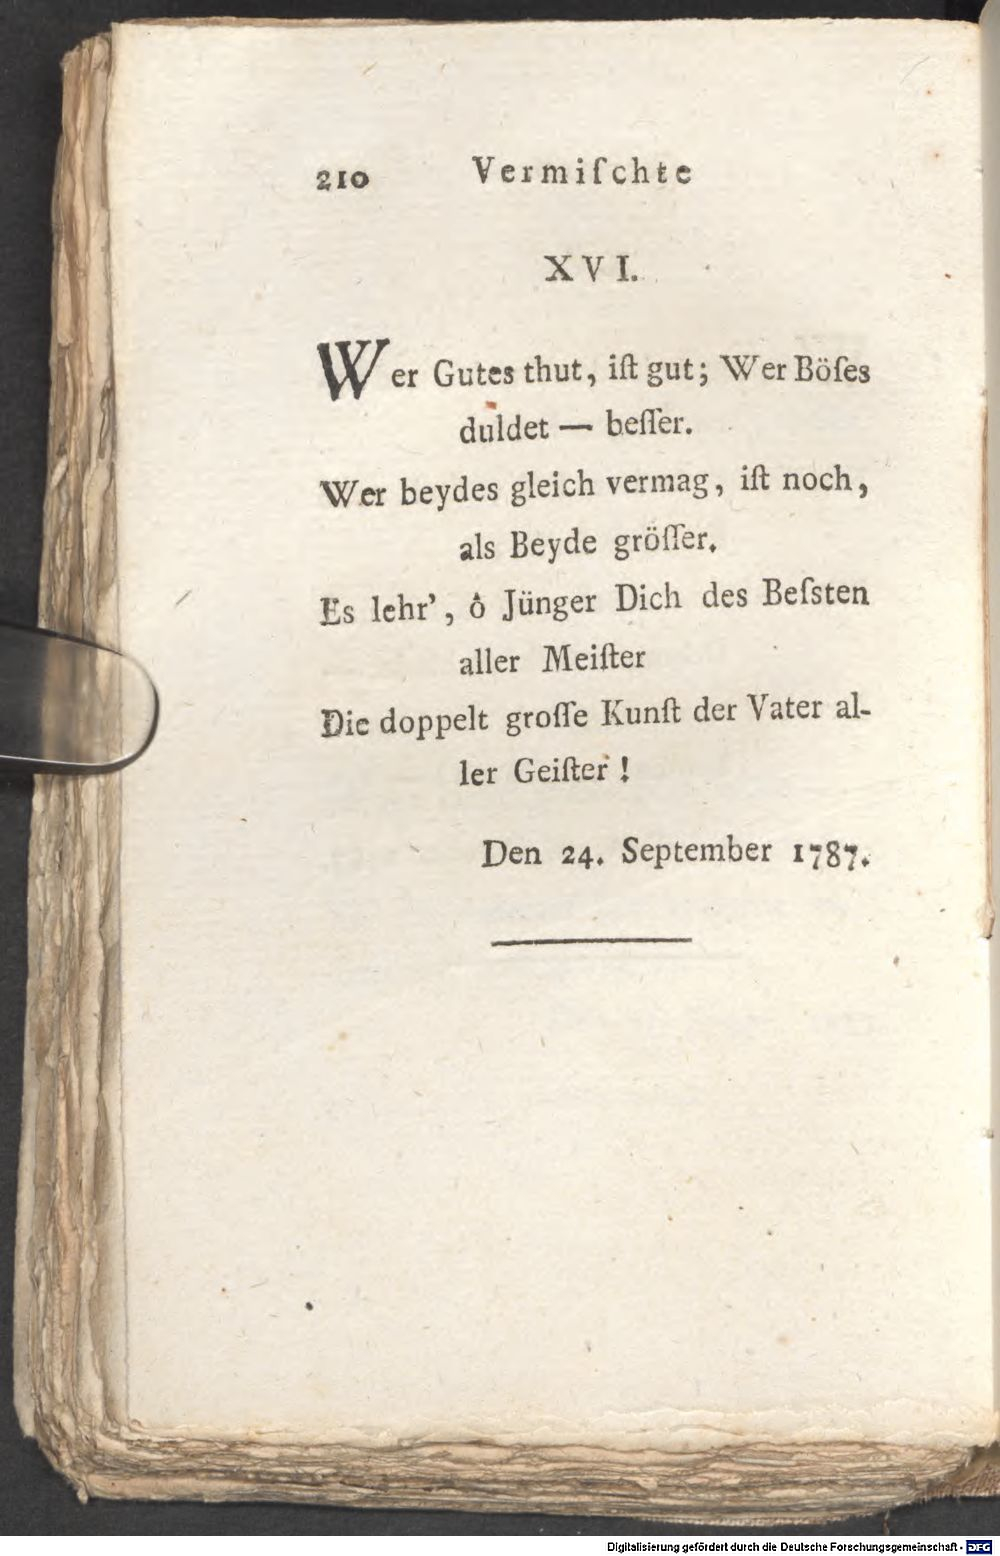 210 Vermiſchte
XVI.
Wer Gutes thut, iſt gut; Wer Böſes
duldet — beſſer.
Wer beydes gleich vermag, iſt noch,
als Beyde gröſſer.
Es lehr', ô Jünger Dich des Beſsten
aller Meiſter
Die doppelt groſſe Kunſt der Vater al-
ler Geiſter!
Den 24. September 1787.
Digitalisierung gefördert durch die Deutsche Forschungsgemeinschaft - DFG